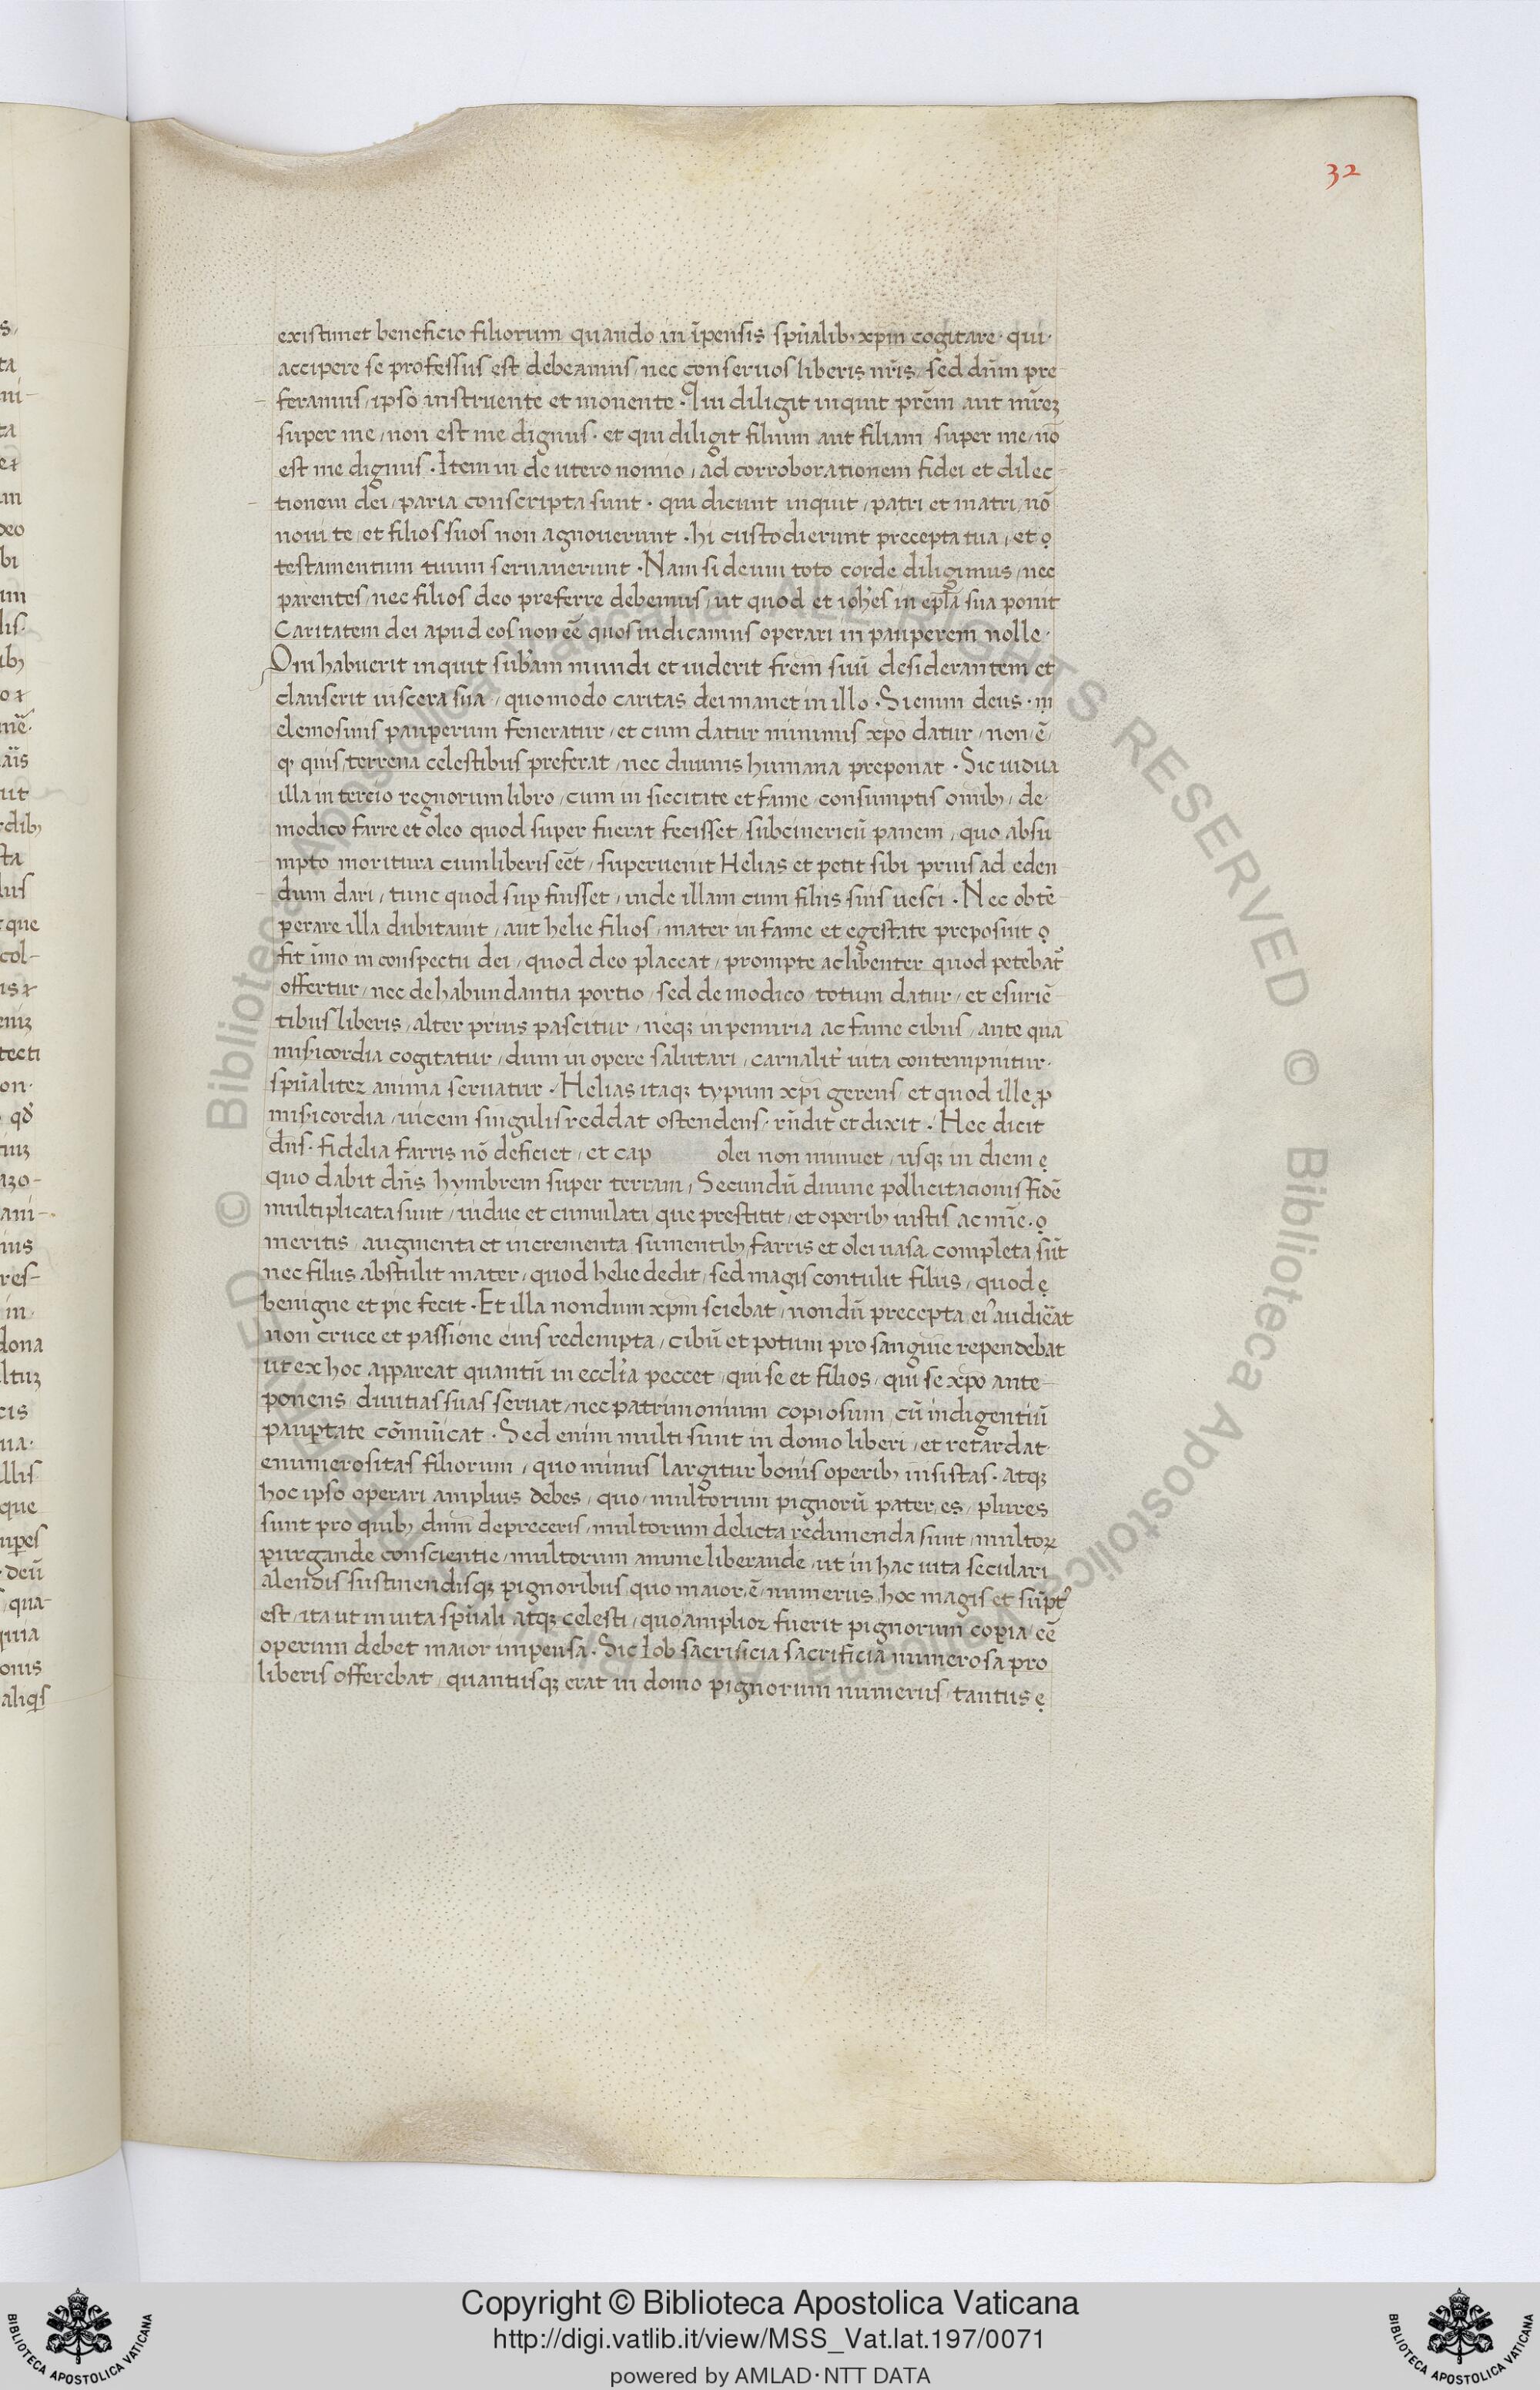 32
existimet beneficio filiorum quando in īpensis spūalib; xpm cogitare · qui ·
accipere se professus est debeamus / nec conseruos liberis nr̄is / sed dūm pre
feramus / ipso instruente et monente · Qui diligit inquit prēm aut mr̄eꝫ
super me / non est me dignus · et qui diligit filium aut filiam / super me / nō
est me dignus · Item in deuteronomio / ad corroborationem fidei et dilec-
tionem dei / paria conscripta sunt · qui dicunt inquit / patri et matri / nō
noui te / et filios suos non agnouerunt · hi custodierunt precepta tua / et
testamentum tuum seruauerunt · Nam si deum toto corde diligimus / nec
parentes / nec filios deo preferre debemus / ut quod et ioh'es in ep̄la sua ponit
Caritatem dei apud eos non eē quos uidicamus operari in pauperem nolle ·
Qui habuerit inquit sub'am mundi et uiderit frēm suū desiderantem et
clauserit uiscera sua / quomodo caritas dei manet in illo · Si enim deus · in
elemosinis pauperum feneratur / et cum datur minimis xpo datur / non ē /
q, quis terrena celestibus preferat / nec diuinis humana preponat · Sic uidua
illa in tercio regnorum libro / cum in siccitate et fame / consumptis omib; / de ·
modico farre et oleo quod super fuerat fecisset / subcinericiū panem / quo absu
mpto moritura cum liberis eēt / superuenit Helias et petit sibi prius ad eden
dum dari / tunc quod suꝑ fuisset / inde illam cum filiis suis uesci · Nec obtē
perare illa dubitauit / aut helie filios / mater in fame et egestate preposuit
fit ūno in conspectu dei / quod deo placeat / prompte ac libenter quod petebat'
offertur / nec de habundantia portio / sed de modico totum datur / et esuriē
tibus liberis / alter prius pascitur / neqꝫ in penuria ac fame cibus / ante quā
misicordia cogitatur / dum in opere salutari / carnalit' uita contempnitur ·
spūaliteꝛ anima seruatur · Helias itaqꝫ typum xpi gerens / et quod ille ꝓ
misicordia / uicem singulis reddat ostendens · rn̄dit et dixit · Hec dicit
dn̄s · fidelia farris nō deficiet / et cap olei non minuet / usqꝫ in diem
quo dabit dn̄s hymbrem super terram / Secundū diuine pollicitacionis fidē
multiplicata sunt / uidue et cumulata que prestitit / et operib; iustis ac mīe ·
meritis / augmenta et incrementa sumentib; farris et olei uasa completa sūt
nec filiis abstulit mater / quod helie dedit / sed magis contulit filiis / quod
benigne et pie fecit · Et illa nondum xpm sciebat / nondū precepta ei' audierat
non cruce et passione eius redempta / cibū et potum pro sanguine rependebat
ut ex hoc appareat quantū in eccl'ia peccet / qui se et filios / qui se xpo ante-
ponens / diuitias suas seruat / nec patrimonium copiosum / cū indigentiū
pauꝑtate cōmūicat · Sed enim multi sunt in domo liberi / et retardat
enumerositas filiorum / quo minus largitur bonis operib; insistas · atqꝫ
hoc ipso operari amplius debes / quo / multorum pignorū pater es / plures
sunt pro quib; dūm depreceris / multorum delicta redimenda sunt / multoꝝ
purgande conscientie / multorum anime liberande / ut in hac uita seculari
alendis sustinendisqꝫ pignoribus quo maior ē numerus hoc magis et sūpt'
est / ita ut in uita spūali atqꝫ celesti / quo amplioꝛ fuerit pignorum copia eē
operum debet maior impensa · Sic Iob sacrificia sacrificia numerosa pro
liberis offerebat / quantusqꝫ erat in domo pignorum numerus / tantus
Copyright © Biblioteca Apostolica Vaticana
http://digi.vatlib.it/view/MSS_Vat.lat.197/0071
powered by AMLAD·NTT DATA
BIBLIOTECA APOSTOLICA VATICANA
BIBLIOTECA APOSTOLICA VATICANA